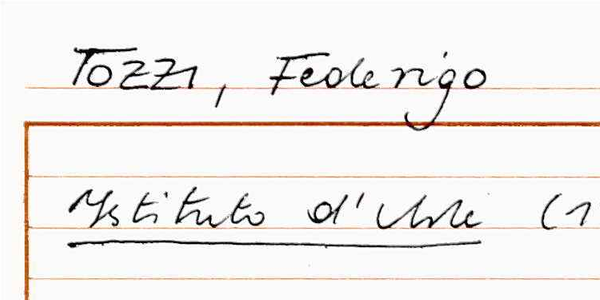 Tozzi, Federigo
Istituto d'Arte (1